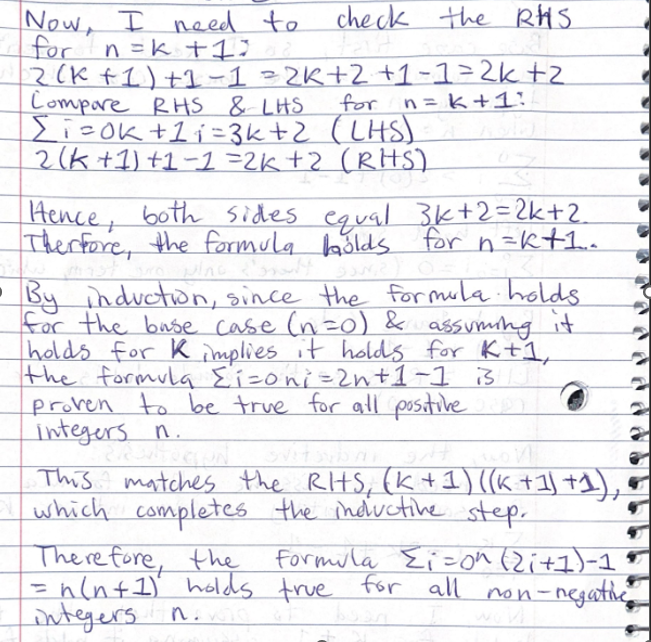 Now, I need to check the RHS
for n = k + 1:
2(k + 1) + 1 - 1 = 2k + 2 + 1 - 1 = 2k + 2
Compare RHS & LHS for n = k + 1:
Σi=0k + 1 i = 3k + 2 (LHS)
2(k + 1) + 1 - 1 = 2k + 2 (RHS)
Hence, both sides equal 3k + 2 = 2k + 2.
Therfore, the formula holds for n = k + 1..
By induction, since the formula holds
for the base case (n = 0) & assuming it
holds for K implies it holds for K + 1,
the formula Σi=0ni = 2n + 1 - 1 is
proven to be true for all positive
integers n.
This matches the RHS, (k + 1)((k + 1) + 1),
which completes the inductive step.
Therefore, the formula Σi=0n (2i + 1) - 1
= n(n + 1) holds true for all non-negative
integers n.